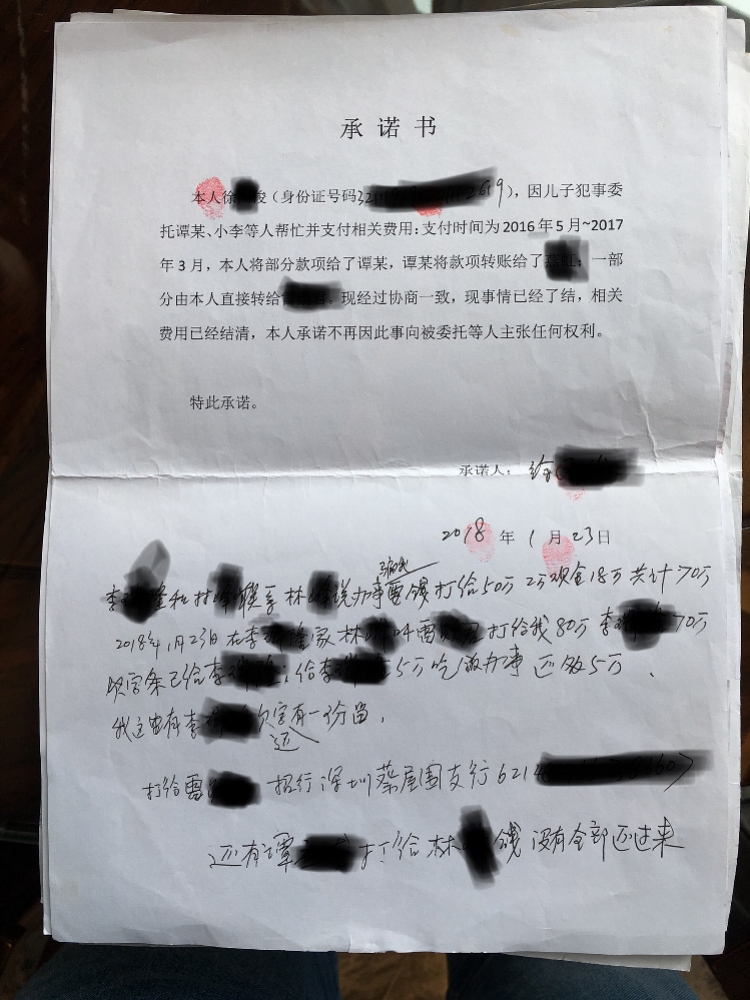 承诺书
本人徐 俊（身份证号码32 2619），因儿子犯事委
托谭某、小李等人帮忙并支付相关费用：支付时间为2016年5月~2017
年3月，本人将部分款项给了谭某，谭某将款项转账给了 ；一部
分由本人直接转给 ，现经过协商一致，现事情已经了结，相关
费用已经结清，本人承诺不再因此事向被委托等人主张任何权利。
特此承诺。
承诺人：徐
2018年1月23日
李 和林 联系 林 说办事需钱 打给50万 2万 18万 共计70万
2018年1月23日在李 家 林 叫雷 打给我80万 李 70万
欠字条已给李 ；给李 5万吃饭办事 还欠5万．
我这也有李 欠字有一份留．
打给雷 招行深圳蔡屋围支行 621 7
还有谭 打给林 钱没有全部还过来